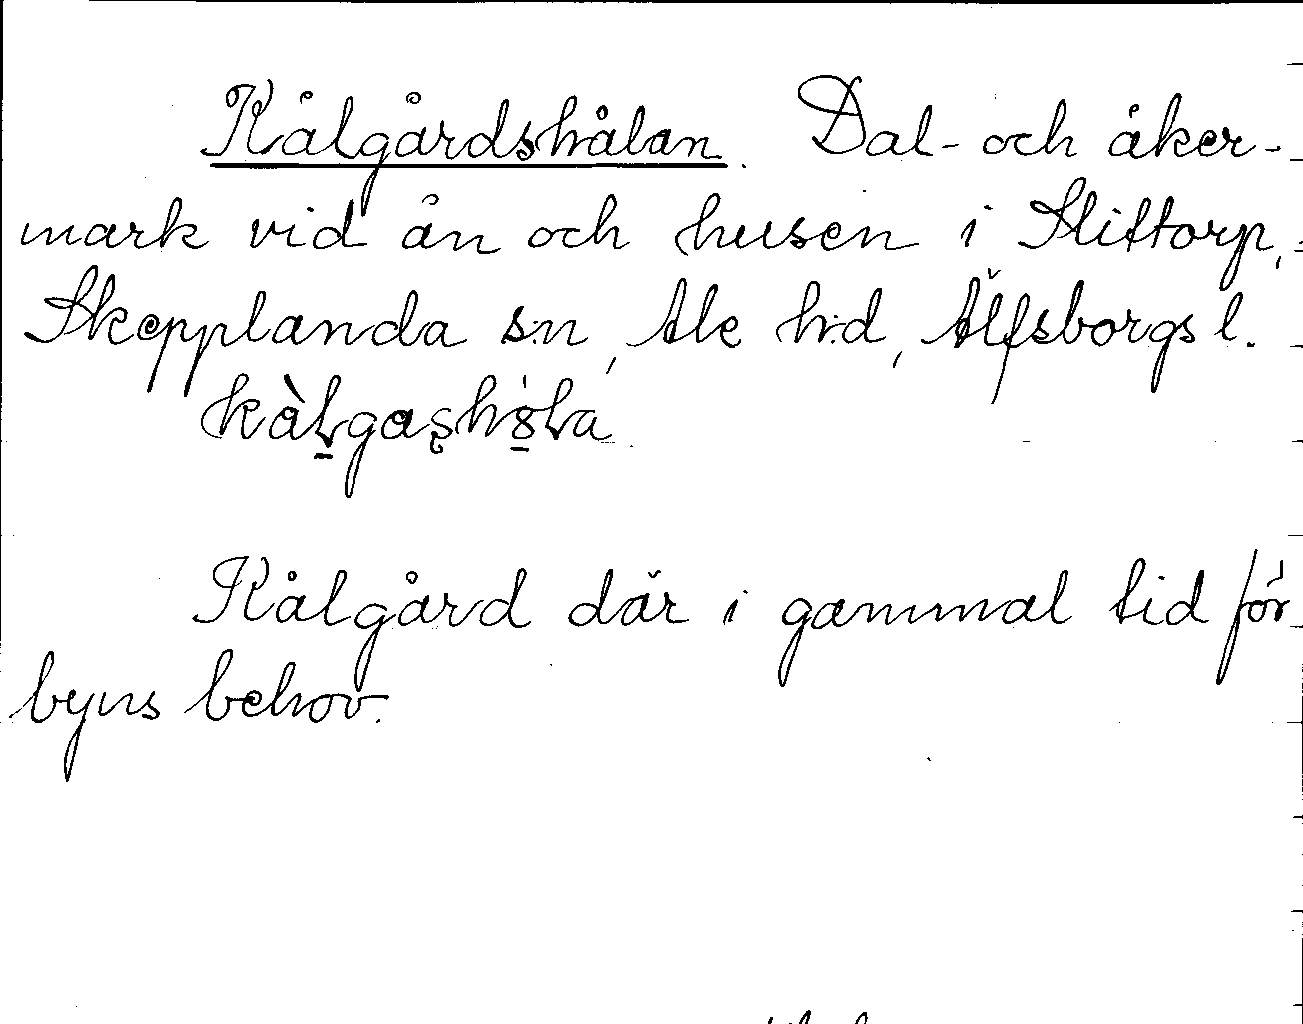 Kålgårdshålan. Dal- och åker-
mark vid ån och husen i Slittorp,
Skepplanda s:n, Ale h:d, Älfsborgs l.
Kålgård där i gammal tid för
byns behov.